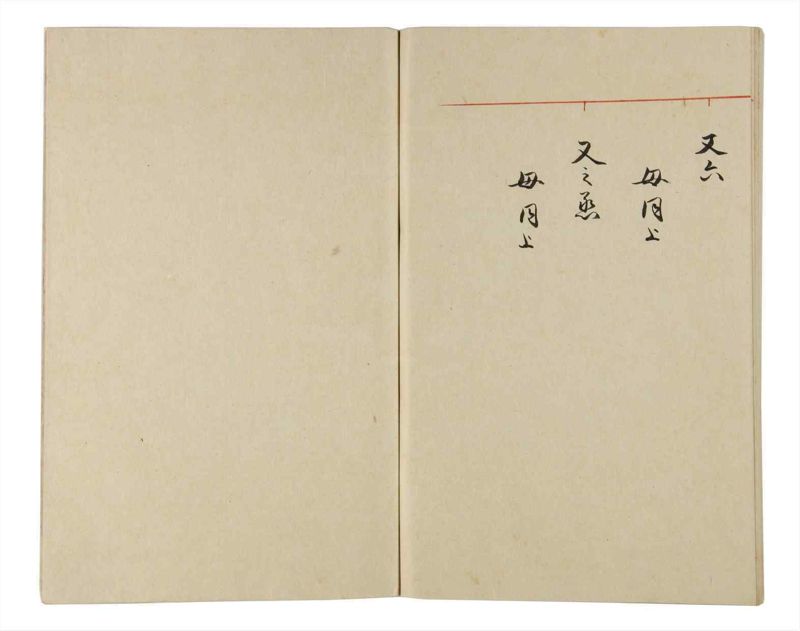 又六
母同上
又之丞
母同上